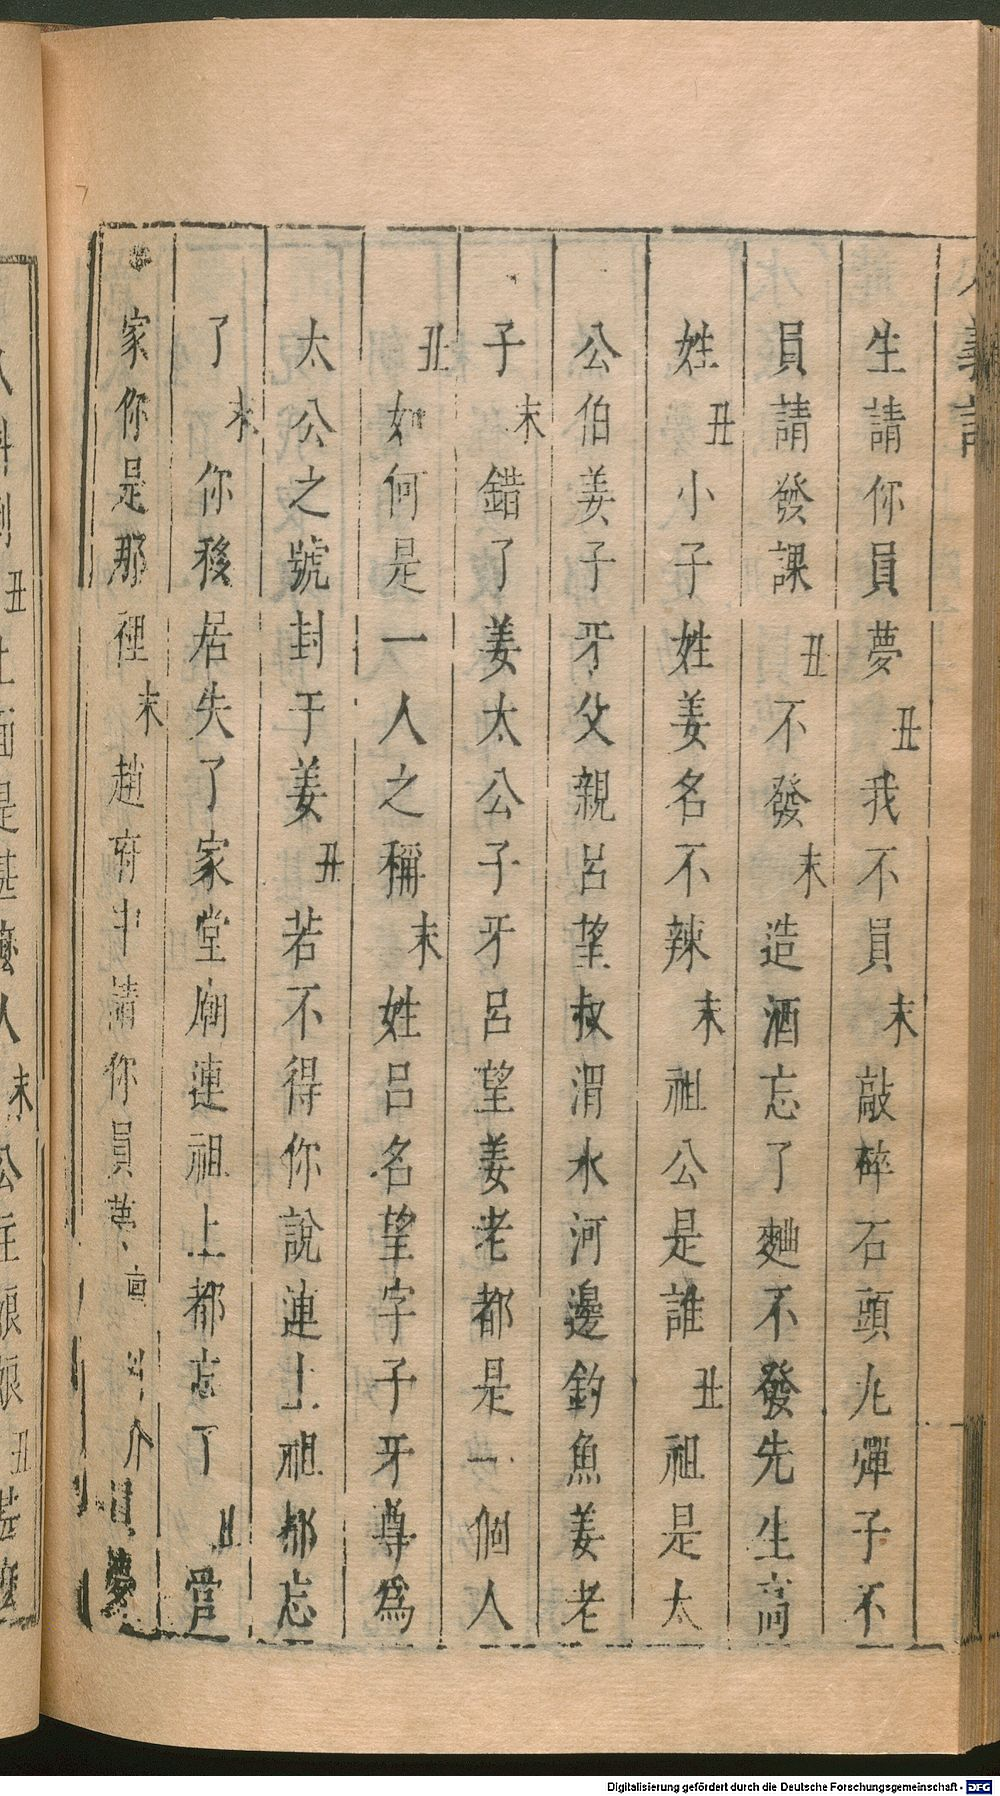 義記
生請你員夢丑我不員末敲碎石頭尢彈子不
員請發課丑不發末造酒忘了麯不發先生高
姓丑小子姓姜名不辣末祖公是誰丑祖是太
公伯姜子牙父親呂望叔渭水河邊釣魚姜老
子末錯了姜太公子牙呂望姜老都是一個人
丑如何是一人之稱末姓呂名望字子牙尊為
太公之號封于姜丑若不得你說連上祖都忘
了末你移居失了家堂廟連祖上都忘了丑官
家你是那裡末趙府中請你員夢介夢
丑上面是甚麼人末公主娘娘丑甚麼
Digitalisierung gefördert durch die Deutsche Forschungsgemeinschaft - DFG